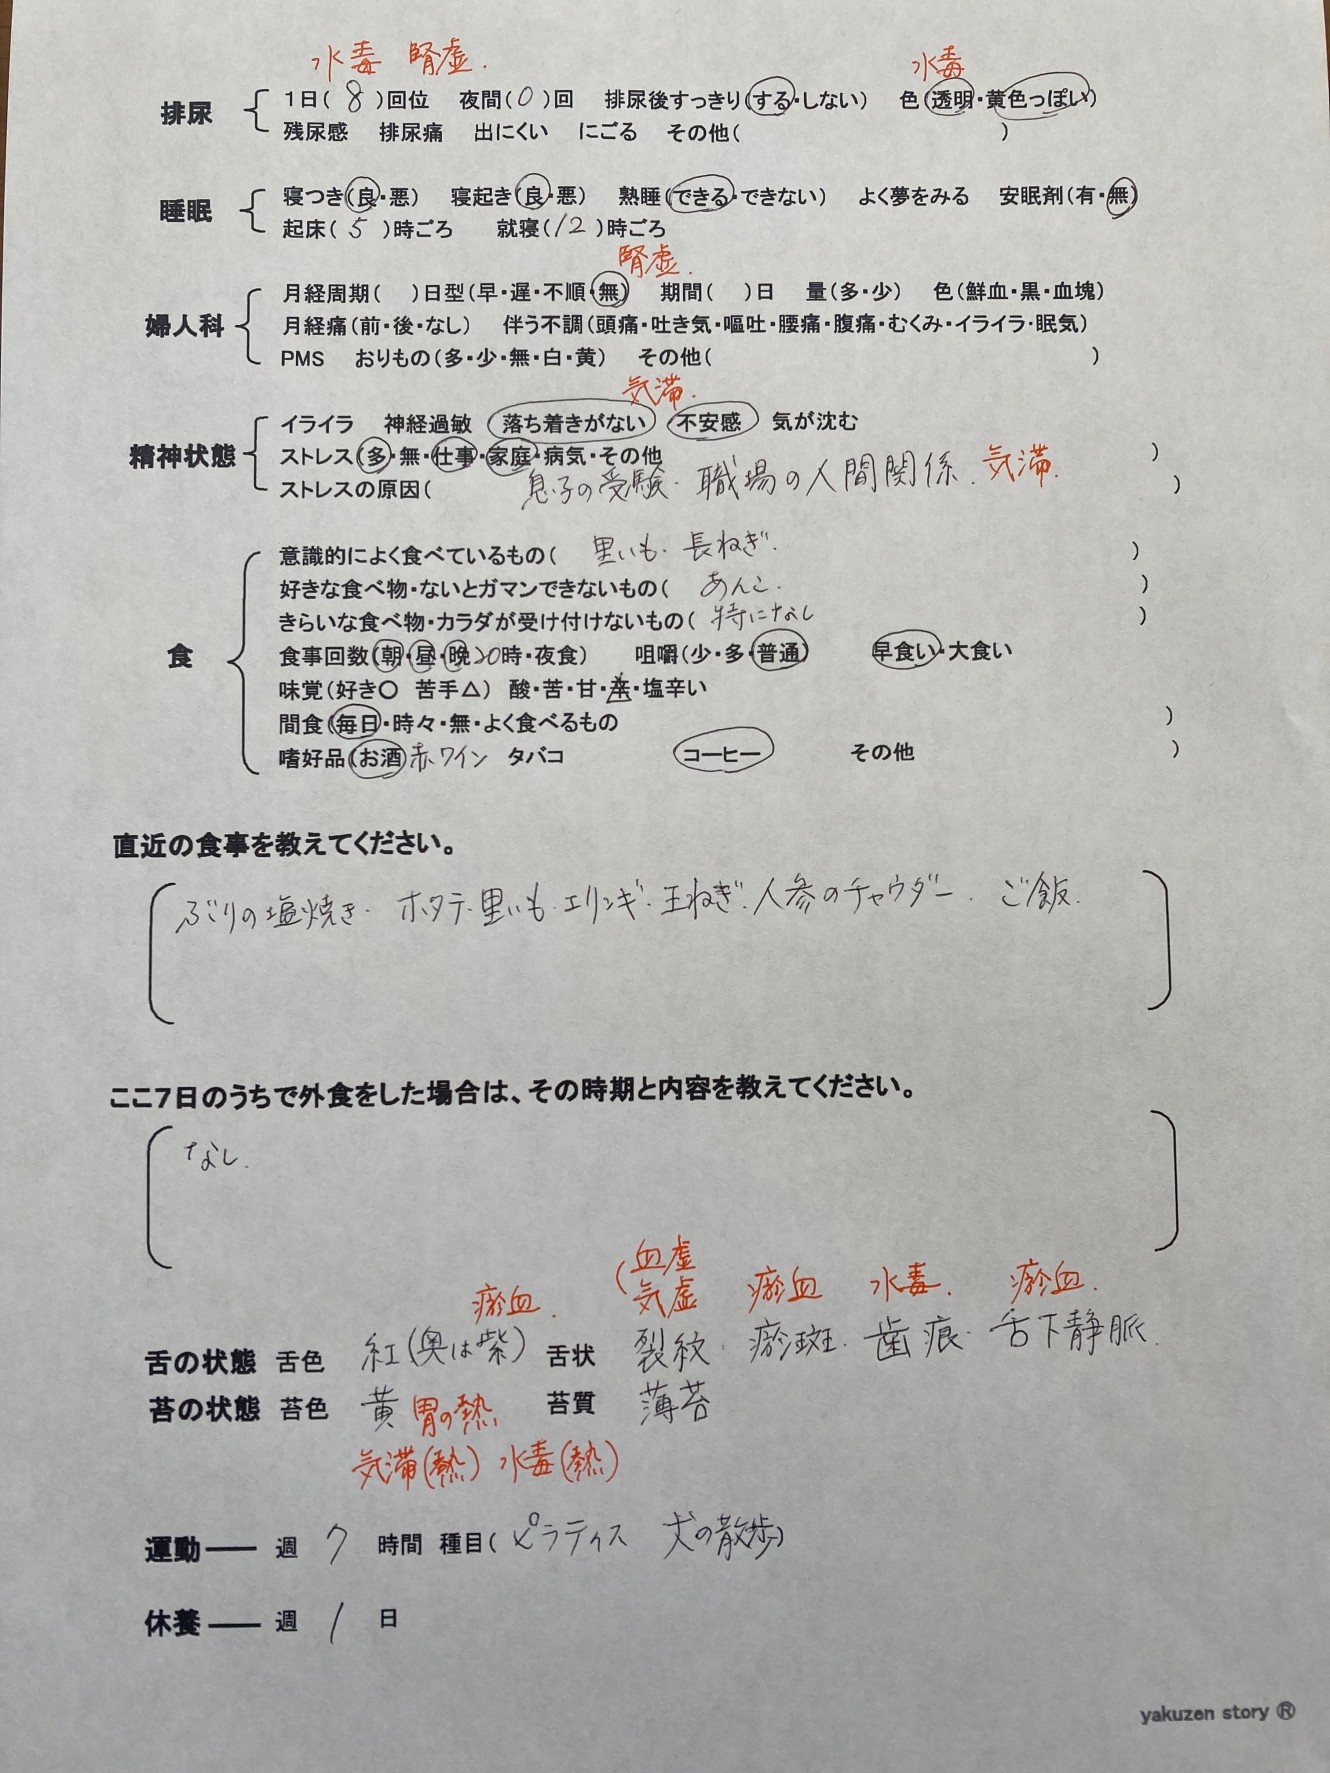 水毒 腎虚. 水毒
排尿 1日(8)回位 夜間(0)回 排尿後すっきり(する・しない) 色(透明・黄色っぽい)
残尿感 排尿痛 出にくい にごる その他( )
睡眠 寝つき(良・悪) 寝起き(良・悪) 熟睡(できる・できない) よく夢をみる 安眠剤(有・無)
起床(5)時ごろ 就寝(12)時ごろ
腎虚.
婦人科 月経周期( )日型(早・遅・不順・無) 期間( )日 量(多・少) 色(鮮血・黒・血塊)
月経痛(前・後・なし) 伴う不調(頭痛・吐き気・嘔吐・腰痛・腹痛・むくみ・イライラ・眠気)
PMS おりもの(多・少・無・白・黄) その他( )
気滞.
精神状態 イライラ 神経過敏 落ち着きがない 不安感 気が沈む
ストレス(多・無・仕事・家庭・病気・その他 )
ストレスの原因( 息子の受験・職場の人間関係. 気滞. )
食 意識的によく食べているもの( 里いも・長ねぎ. )
好きな食べ物・ないとガマンできないもの( あんこ. )
きらいな食べ物・カラダが受け付けないもの( 特になし )
食事回数(朝・昼・晩20時・夜食) 咀嚼(少・多・普通) 早食い・大食い
味覚(好き〇 苦手△) 酸・苦・甘・辛・塩辛い
間食(毎日・時々・無・よく食べるもの )
嗜好品(お酒 赤ワイン タバコ コーヒー その他 )
直近の食事を教えてください。
ぶりの塩焼き・ ホタテ・里いも・エリンギ・玉ねぎ・人参のチャウダー. ご飯.
ここ7日のうちで外食をした場合は、その時期と内容を教えてください。
なし.
瘀血. (血虚 気虚 瘀血 水毒. 瘀血.
舌の状態 舌色 紅(奥は紫) 舌状 裂紋・瘀斑・歯痕・舌下静脈.
苔の状態 苔色 黄 胃の熱 苔質 薄苔
気滞(熱) 水毒(熱)
運動― 週 7 時間 種目(ピラティス 犬の散歩)
休養― 週 1 日
yakuzen story ®